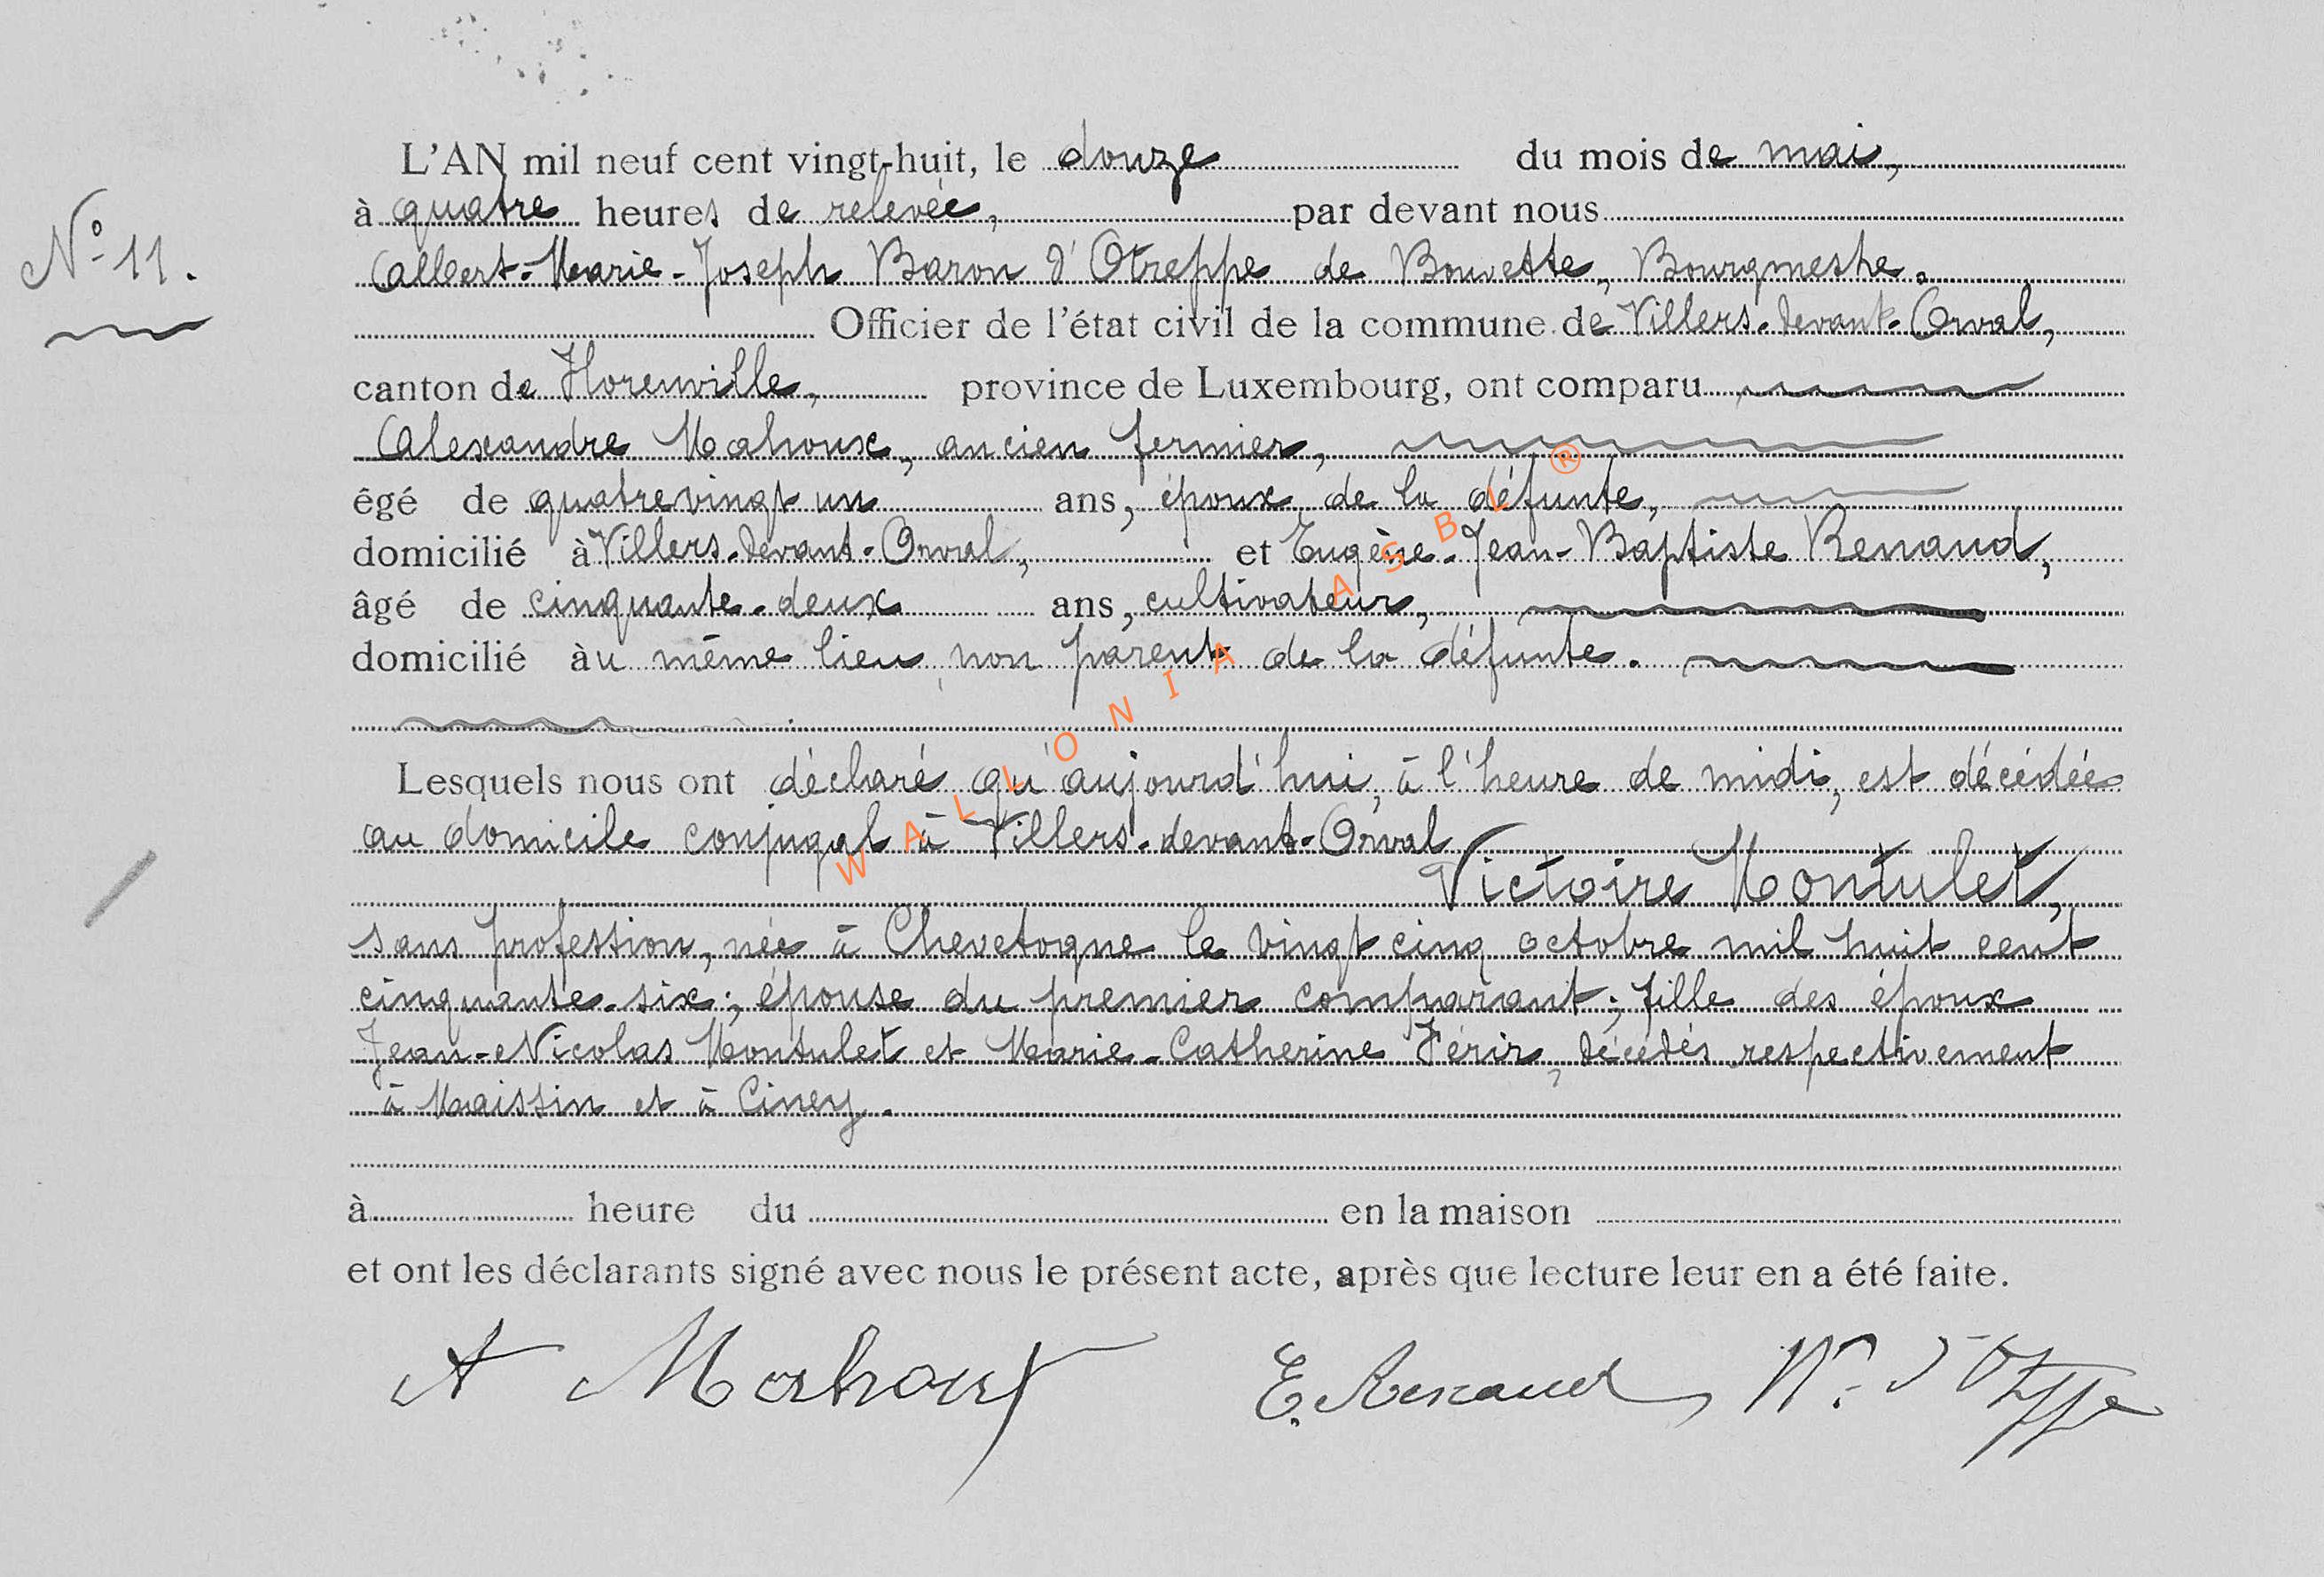 L'AN mil neuf cent vingt-huit, le douze du mois de mai,
à quatre heures de relevée, par devant nous
N° 11.
Albert-Marie-Joseph Baron d'Otreppe de Bouvette, Bourgmestre.
Officier de l'état civil de la commune de Villers-devant-Orval,
canton de Florenville, province de Luxembourg, ont comparu
Alexandre Mahoux, ancien fermier,
êgé de quatre vingt un ans, époux de la défunte,
domicilié à Villers-devant-Orval, et Eugène-Jean-Baptiste Renaud,
âgé de cinquante-deux ans, cultivateur,
domicilié àu même lieu, non parent de la défunte.
Lesquels nous ont déclaré qu'aujourd'hui, à l'heure de midi, est décédée
au domicile conjugal à Villers-devant-Orval
Victoire Montulet,
sans profession, née à Chevetogne le vingt cinq octobre mil huit cent
cinquante-six; épouse du premier comparant; fille des époux
Jean-Nicolas Montulet et Marie-Catherine Férir, décédés respectivement
à Maissin et à Ciney.
à heure du en la maison
et ont les déclarants signé avec nous le présent acte, après que lecture leur en a été faite.
A Mahoux E. Renaud d'Otreppe
WALLONIA ASBL ®